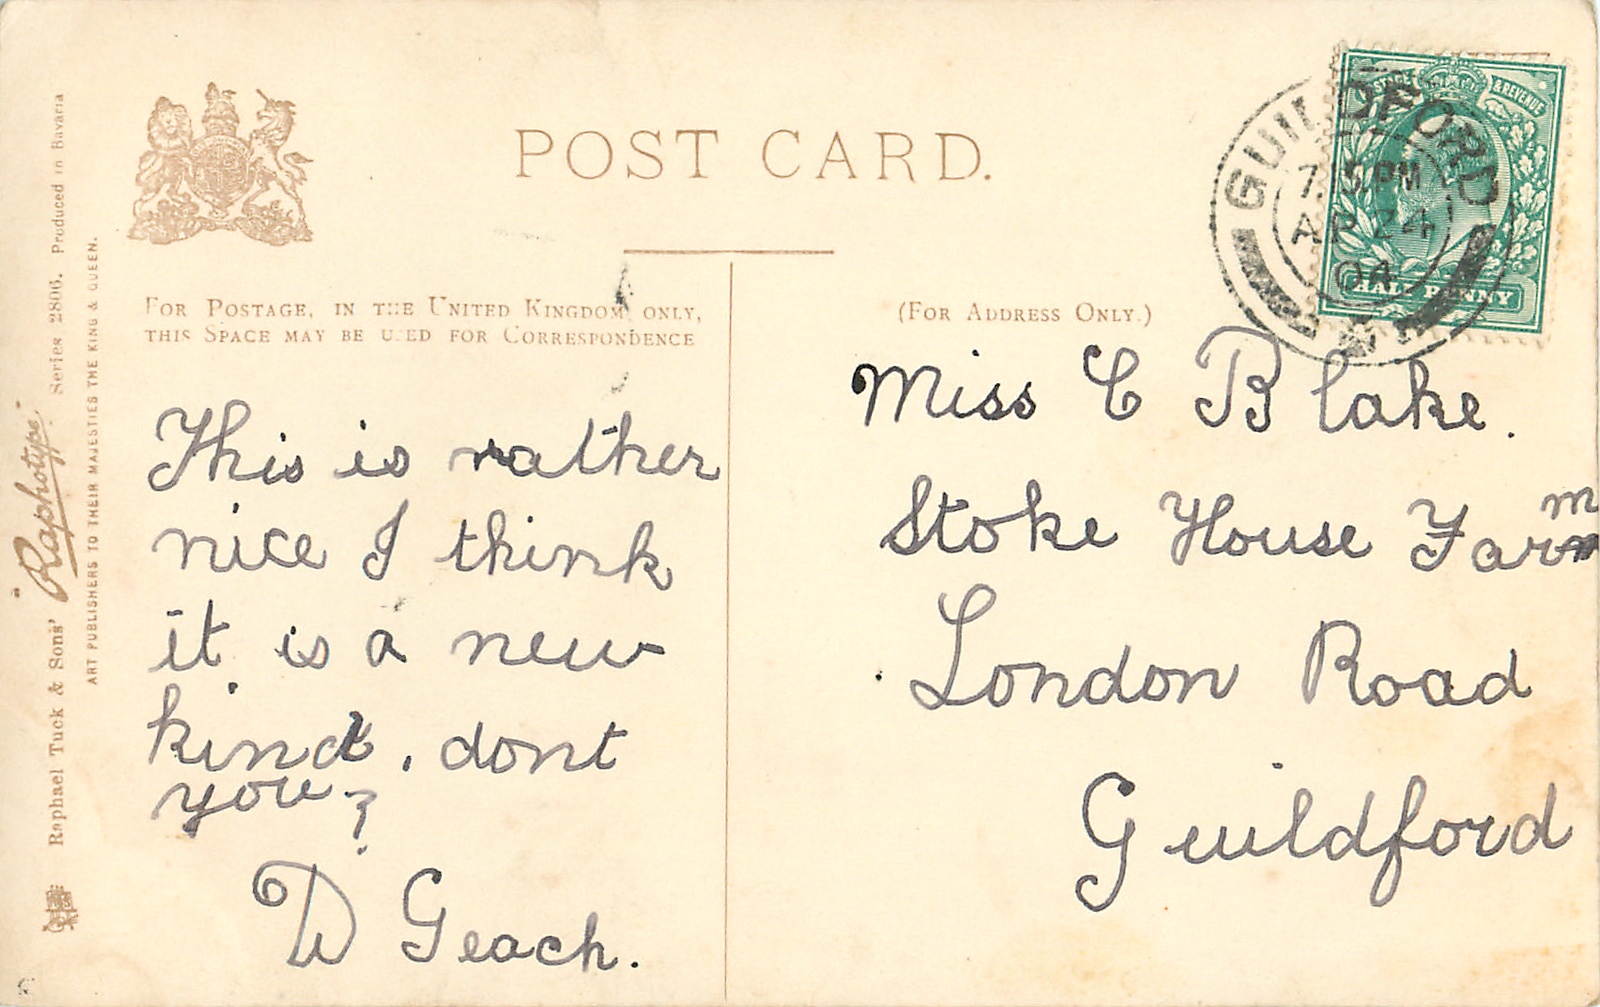 POST CARD.
FOR POSTAGE, IN THE UNITED KINGDOM ONLY,
THIS SPACE MAY BE USED FOR CORRESPONDENCE
This is rather
nice I think
it is a new
kind. dont
you?
D Geach.
(FOR ADDRESS ONLY.)
Miss C Blake.
Stoke House Farm
m
London Road
Guildford
POSTAGE & REVENUE
HALF PENNY
GUILDFORD
PM
AP 24
04
Raphael Tuck & Sons' "Raphotype" Series 2806. Produced in Bavaria
ART PUBLISHERS TO THEIR MAJESTIES THE KING & QUEEN.